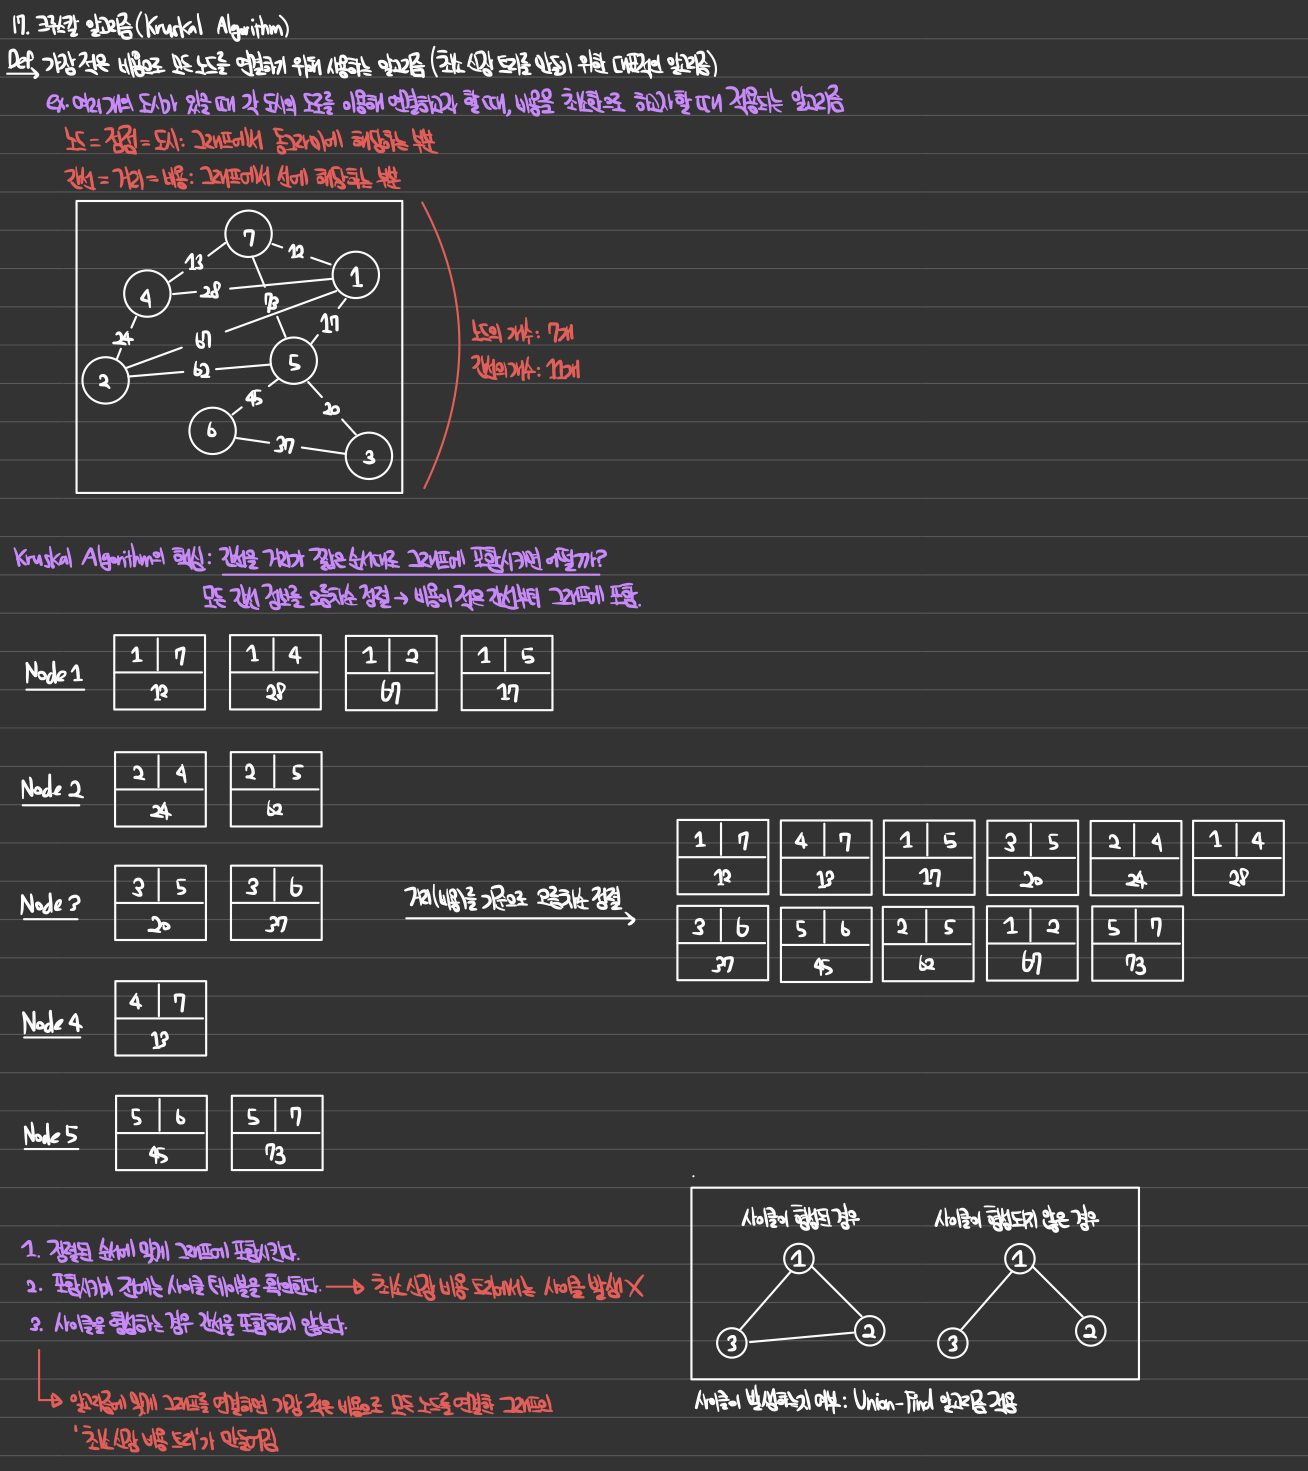 17. 크루스칼 알고리즘(Kruskal Algorithm)
Def. 가장 적은 비용으로 모든 노드를 연결하기 위해 사용하는 알고리즘 (최소 신장 트리를 만들기 위한 대표적인 알고리즘)
ex. 여러개의 도시가 있을 때 각 도시의 도로를 이용해 연결하고자 할 때, 비용을 최소한으로 하고자 할 때 적용되는 알고리즘
노드 = 정점 = 도시: 그래프에서 동그라미에 해당하는 부분
간선 = 거리 = 비용: 그래프에서 선에 해당하는 부분
7
13
12
1
4
28
73
17
24
67
5
2
62
45
20
6
37
3
노드의 개수: 7개
간선의 개수: 11개
Kruskal Algorithm의 핵심: 간선을 거리가 짧은 순서대로 그래프에 포함시키면 어떨까?
모든 간선 정보를 오름차순 정렬 → 비용이 적은 간선부터 그래프에 포함.
Node 1
1 7
12
1 4
28
1 2
67
1 5
17
Node 2
2 4
24
2 5
62
Node 3
3 5
20
3 6
37
거리(비용)를 기준으로 오름차순 정렬
1 7
12
4 7
13
1 5
17
3 5
20
2 4
24
1 4
28
3 6
37
5 6
45
2 5
62
1 2
67
5 7
73
Node 4
4 7
13
Node 5
5 6
45
5 7
73
1. 정렬된 순서에 맞게 그래프에 포함시킨다.
2. 포함시키기 전에는 사이클 테이블을 확인한다. → 최소 신장 비용 트리에서는 사이클 발생 X
3. 사이클을 형성하는 경우 간선을 포함하지 않는다.
→ 알고리즘에 맞게 그래프를 연결하면 가장 적은 비용으로 모든 노드를 연결한 그래프인
'최소 신장 비용 트리'가 만들어짐
사이클이 형성된 경우
1
3
2
사이클이 형성되지 않은 경우
1
3
2
사이클이 발생하는지 여부: Union-Find 알고리즘 적용